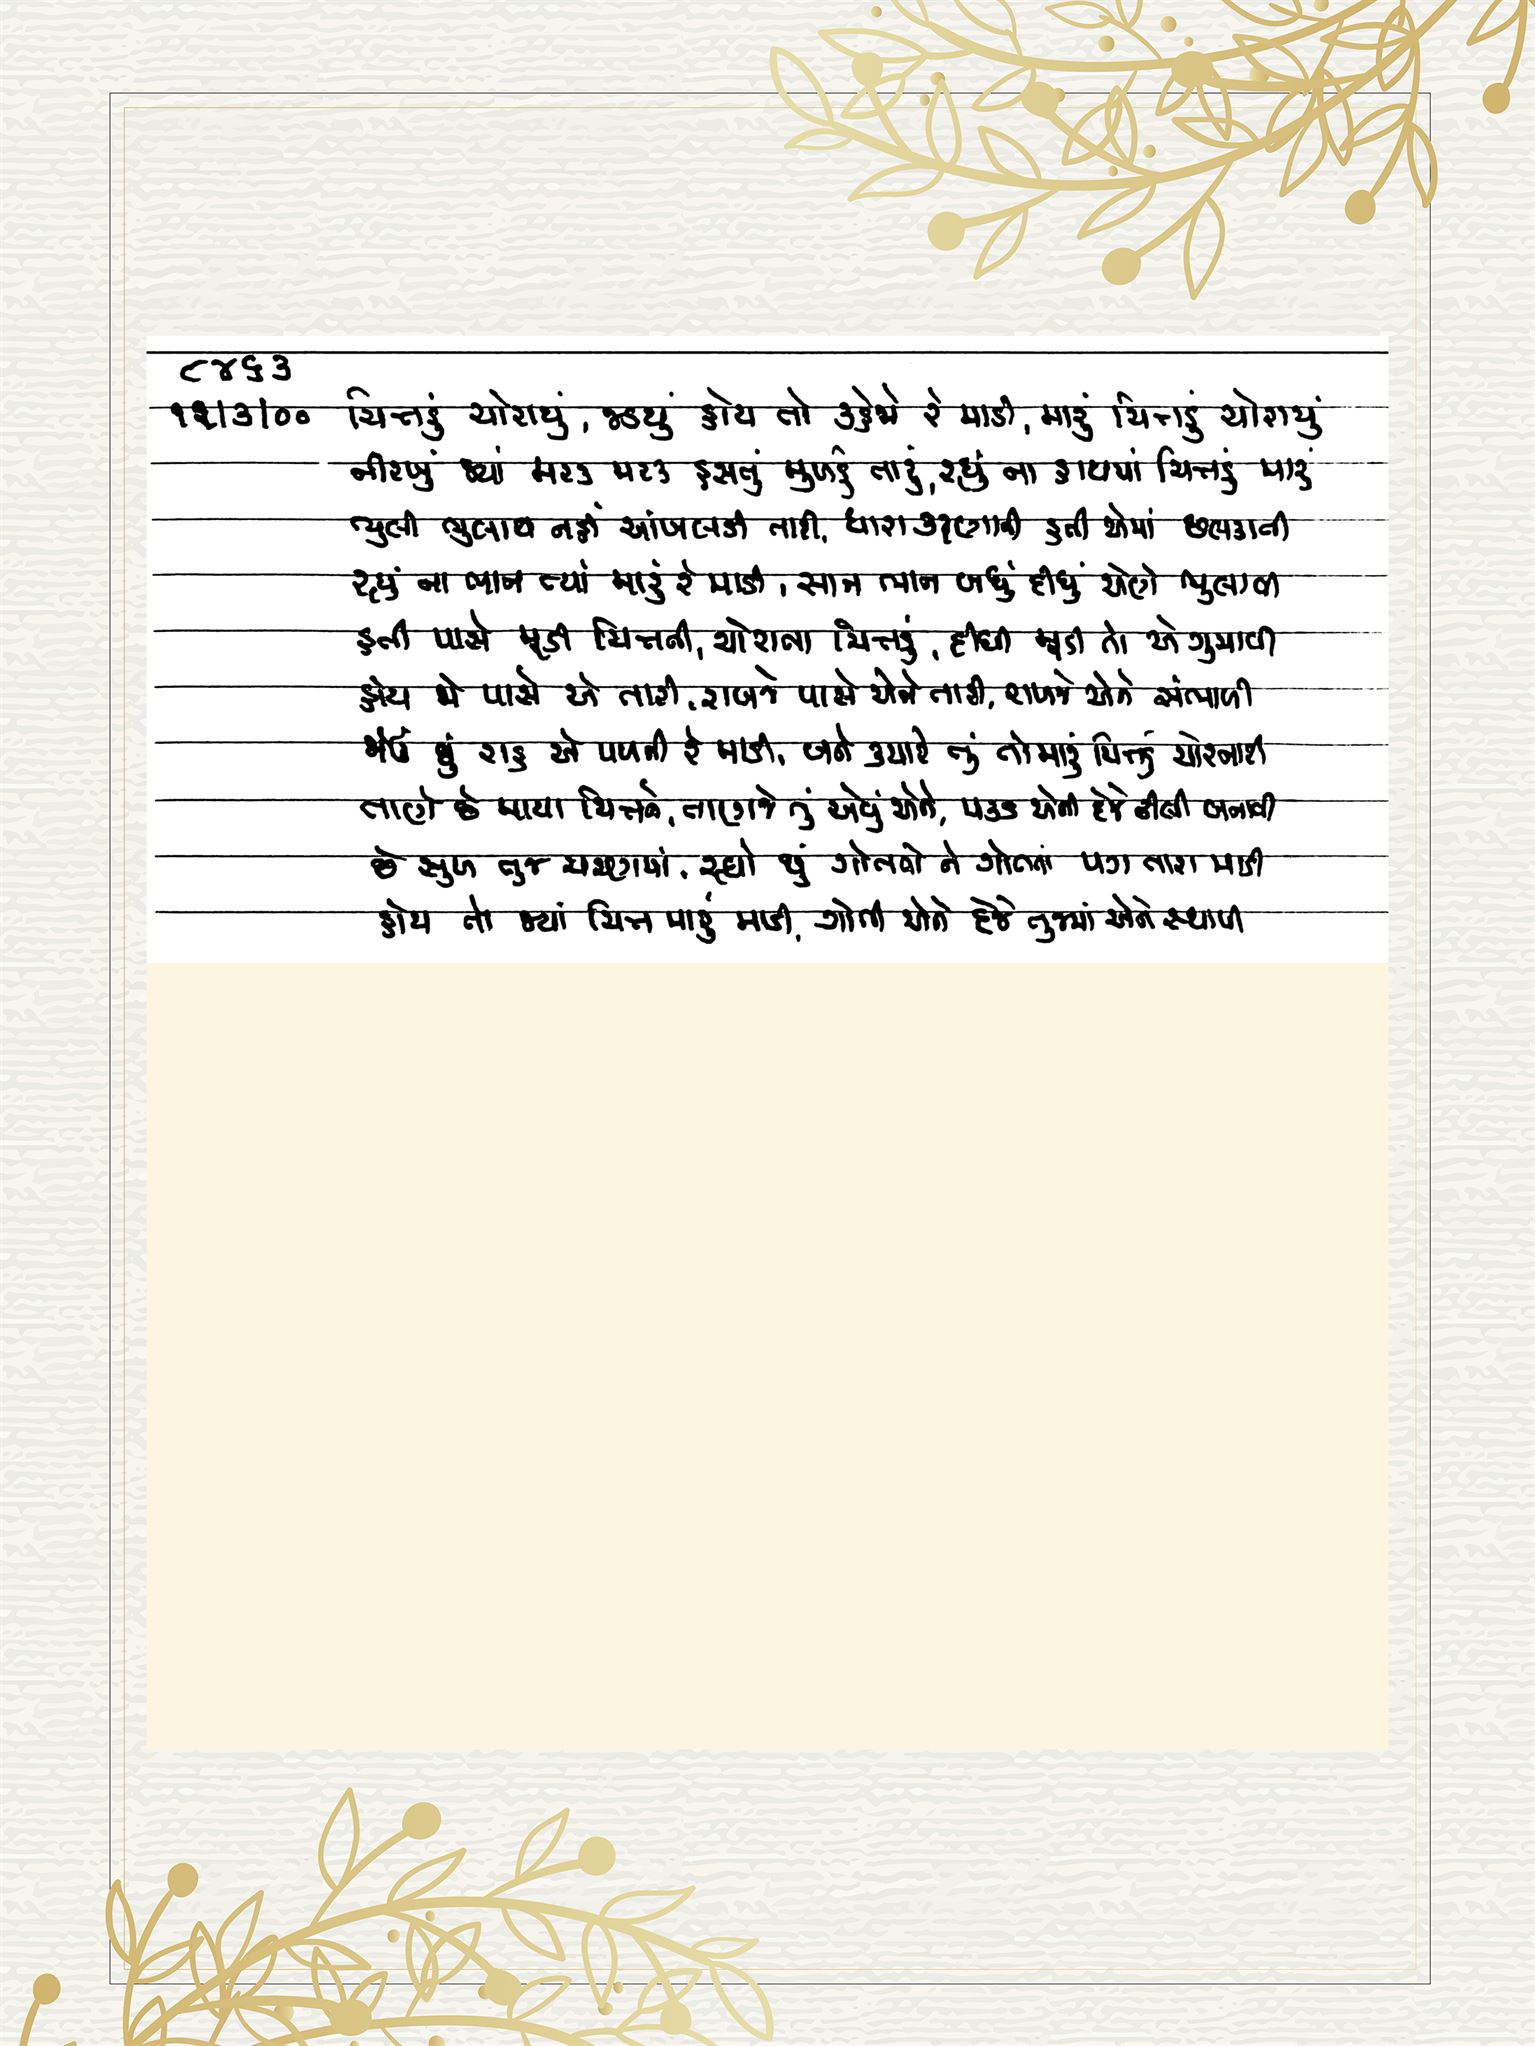 ૮૪૬૩
૧૨/૩/૦૦ ચિત્તડું ચોરાયું, જડયું હોય તો કહેજો રે માડી, મારું ચિત્તડું ચોરાયું
નીરખું જ્યાં મરક મરક હસતું મુખડું તારું, રહ્યું ના હાથમાં ચિત્તડું મારું
ભુલી ભુલાય નહીં આંખલડી તારી, ધારા કરુણાની હતી એમાં છલકાતી
રહ્યું ના ભાન ત્યાં મારું રે માડી, સાન ભાન બધું દીધું એણે ભુલાવી
હતી પાસે મૂડી ચિત્તની, ચોરાતા ચિત્તડું, દીધી મૂડી તો એ ગુમાવી
હોય જો પાસે એ તારી, રાખજે પાસે એને તારી, રાખજે એને સંભાળી
જોઉં છું રાહ એ પળની રે માડી, બને ક્યારે તું તો મારું ચિત્તડું ચોરનારી
તાણે છે માયા ચિત્તને, તાણજે તું એવું એને, પકડ એની દેજે ઢીલી બનાવી
છે સુખ તુજ ચરણમાં, રહ્યો છું ગોતતો ને ગોતતાં પગ તારા માડી
હોય તો જ્યાં ચિત્ત મારું માડી, ગોતી એને દેજે તુજમાં એને સ્થાપી